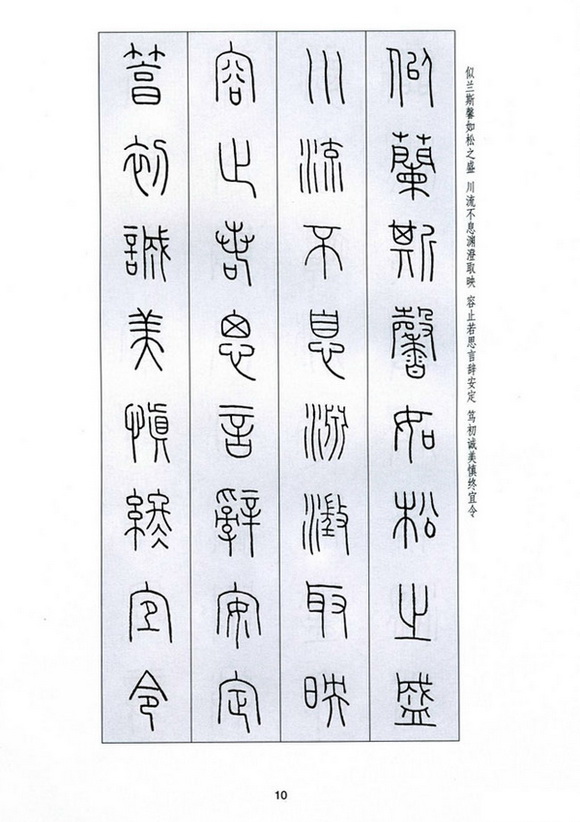 似蘭斯馨如松之盛
川流不息淵澄取映
容止若思言辭安定
篤初誠美慎終宜令
似兰斯馨如松之盛 川流不息渊澄取映 容止若思言辞安定 笃初诚美慎终宜令
10